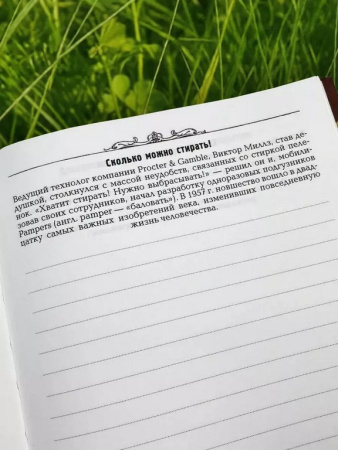 Сколько можно стирать!
Ведущий технолог компании Procter & Gamble, Виктор Миллз, став де-
душкой, столкнулся с массой неудобств, связанных со стиркой пеле-
нок. «Хватит стирать! Нужно выбрасывать!» — решил он и, мобили-
зовав своих сотрудников, начал разработку одноразовых подгузников
Pampers (англ. pamper — «баловать»). В 1957 г. новшество вошло в двад-
цатку самых важных изобретений века, изменивших повседневную
жизнь человечества.